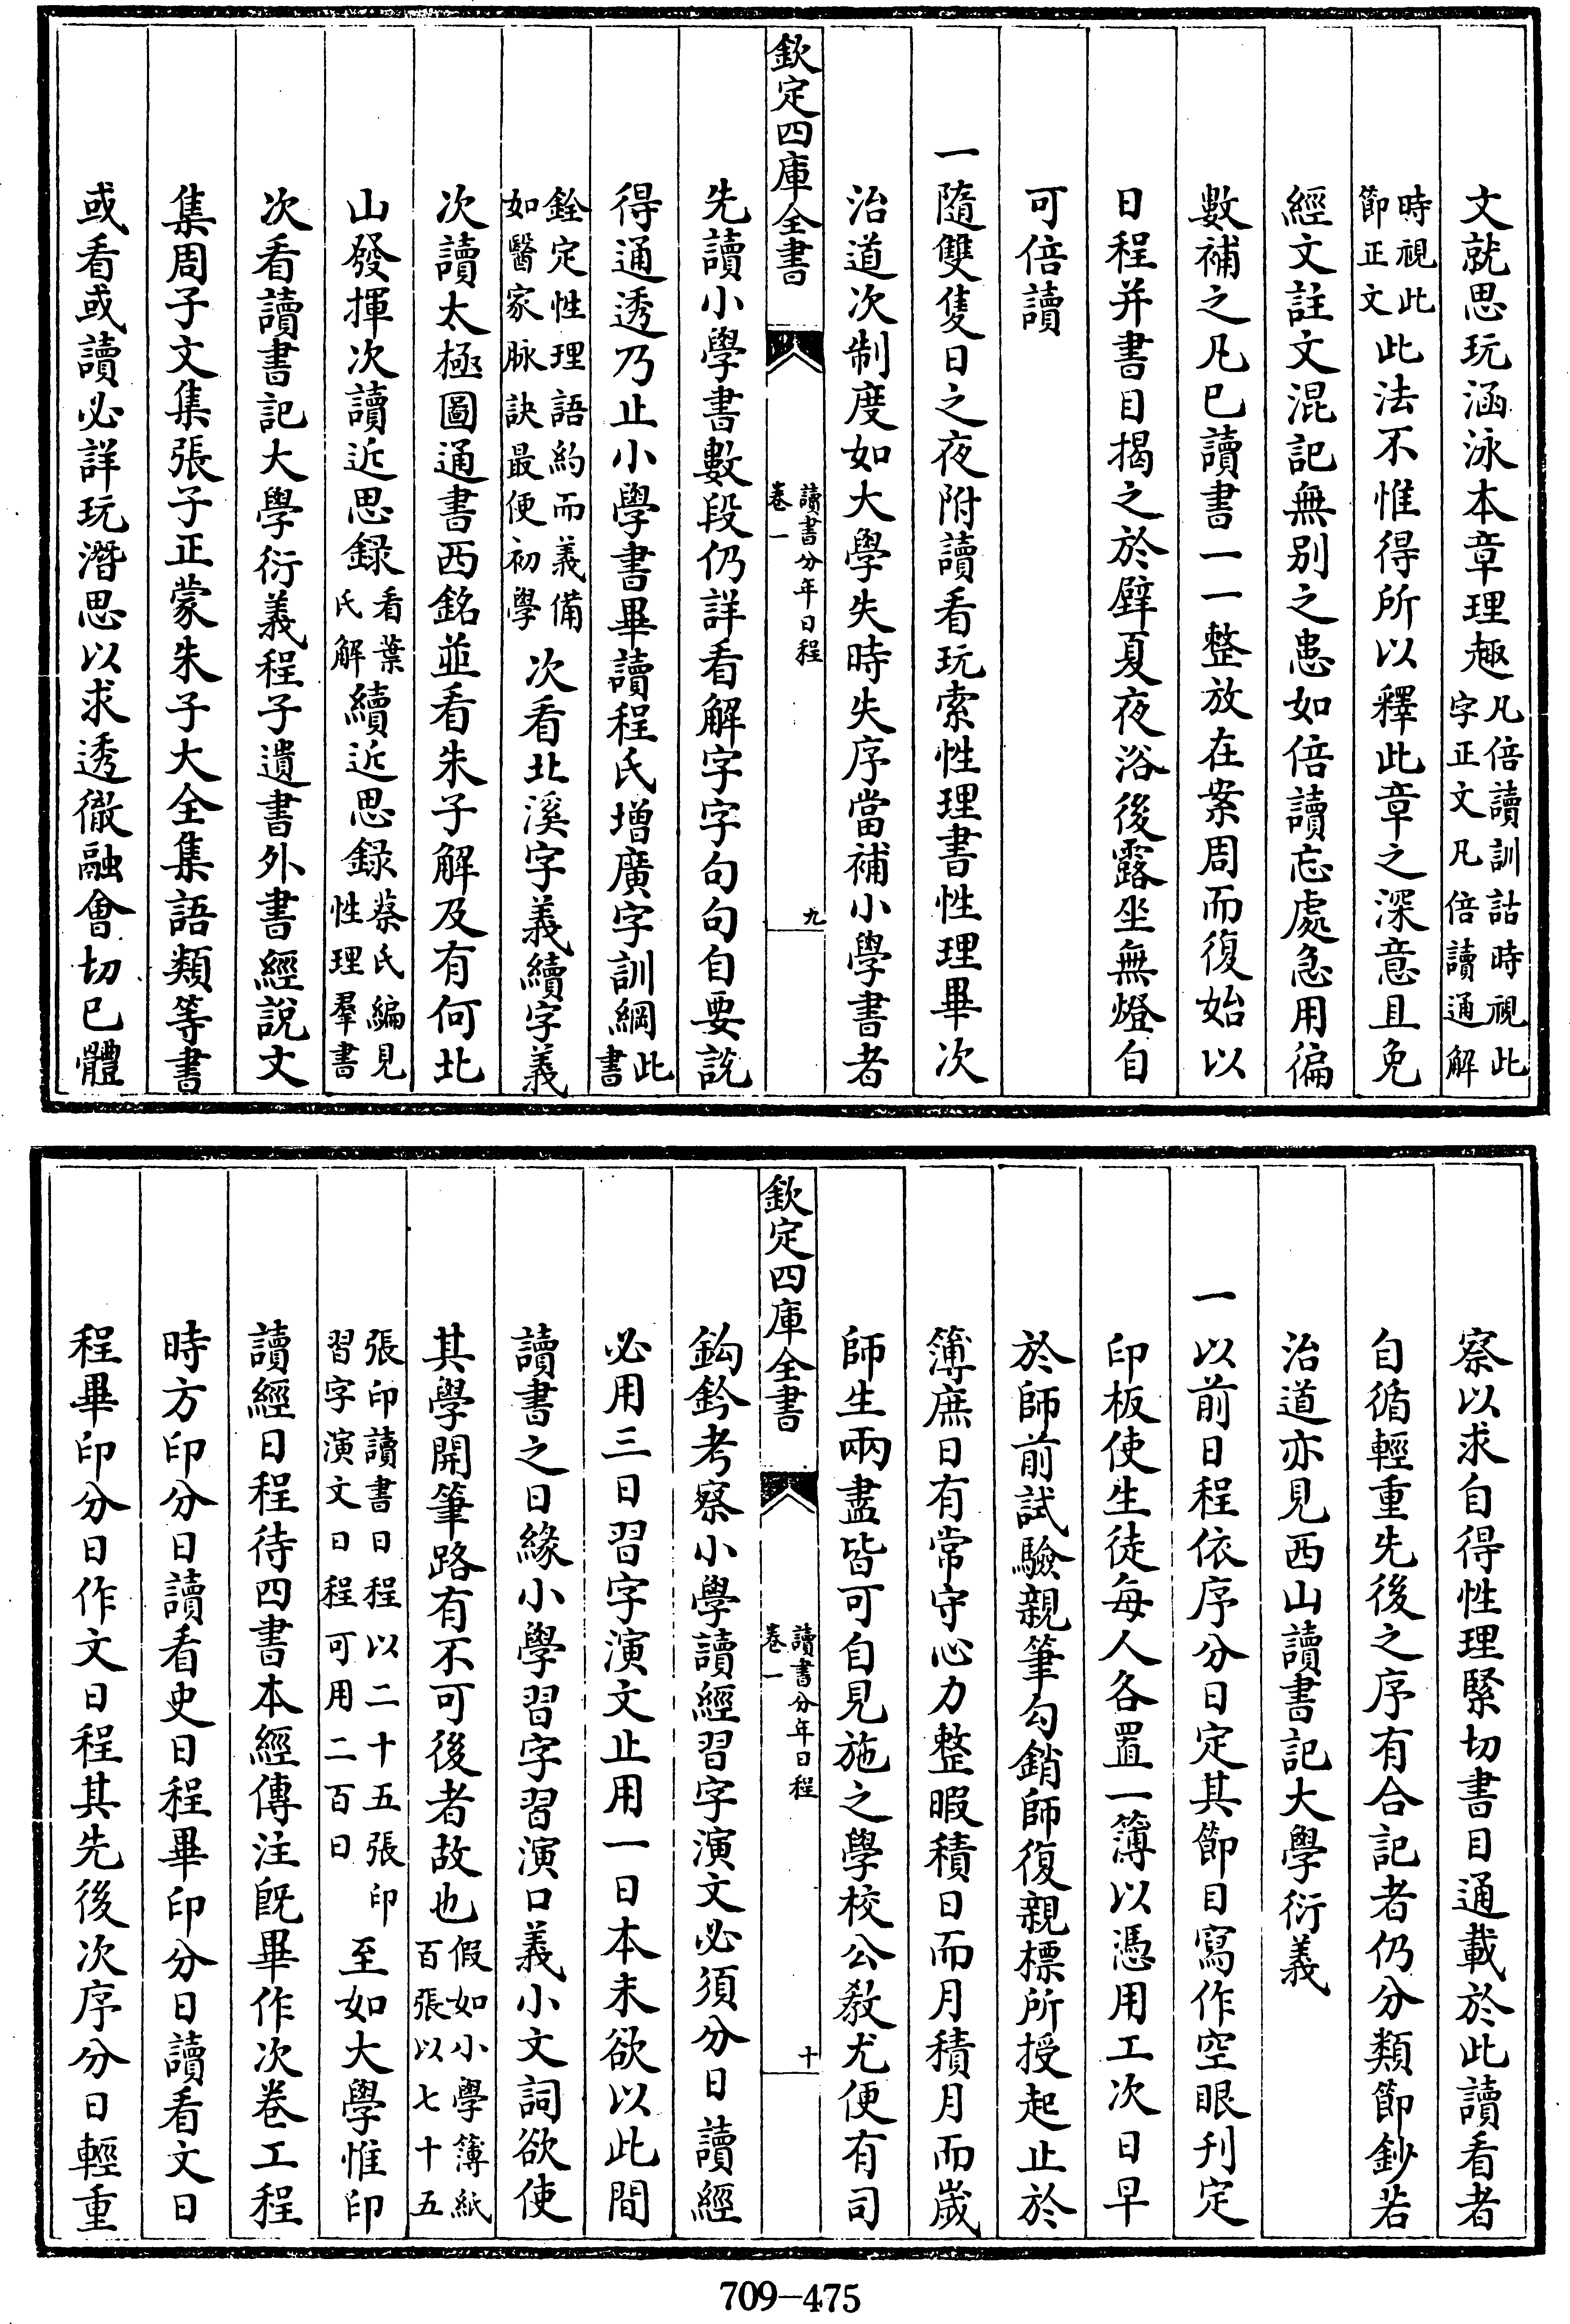 文就思玩涵泳本章理趣凡倍讀訓詁時視此字正文凡倍讀通解
時視此節正文此法不惟得所以釋此章之深意且免
經文註文混記無别之患如倍讀忘處急用徧
數補之凡已讀書一一整放在案周而復始以
日程并書目揭之於壁夏夜浴後露坐無燈自
可倍讀
一隨雙隻日之夜附讀看玩索性理書性理畢次
治道次制度如大學失時失序當補小學書者
欽定四庫全書
讀書分年日程
卷一
九
先讀小學書數段仍詳看解字字句句自要說
得通透乃止小學書畢讀程氏增廣字訓綱此書
銓定性理語約而義備如醫家脉訣最便初學次看北溪字義續字義
次讀太極圖通書西銘並看朱子解及有何北
山發揮次讀近思録看葉氏解續近思録蔡氏編見性理羣書
次看讀書記大學衍義程子遺書外書經説文
集周子文集張子正蒙朱子大全集語類等書
或看或讀必詳玩潛思以求透徹融會切己體
察以求自得性理緊切書目通載於此讀看者
自循輕重先後之序有合記者仍分類節鈔若
治道亦見西山讀書記大學衍義
一以前日程依序分日定其節目寫作空眼刋定
印板使生徒每人各置一簿以憑用工次日早
於師前試驗親筆勾銷師復親標所授起止於
簿庶日有常守心力整暇積日而月積月而嵗
師生兩盡皆可自見施之學校公教尤便有司
欽定四庫全書
讀書分年日程
卷一
十
鈎鈐考察小學讀經習字演文必須分日讀經
必用三日習字演文止用一日本未欲以此間
讀書之日緣小學習字習演口義小文詞欲使
其學開筆路有不可後者故也假如小學簿紙百張以七十五
張印讀書日程以二十五張印習字演文日程可用二百日至如大學惟印
讀經日程待四書本經傳注既畢作次卷工程
時方印分日讀看史日程畢印分日讀看文日
程畢印分日作文日程其先後次序分日輕重
709-475